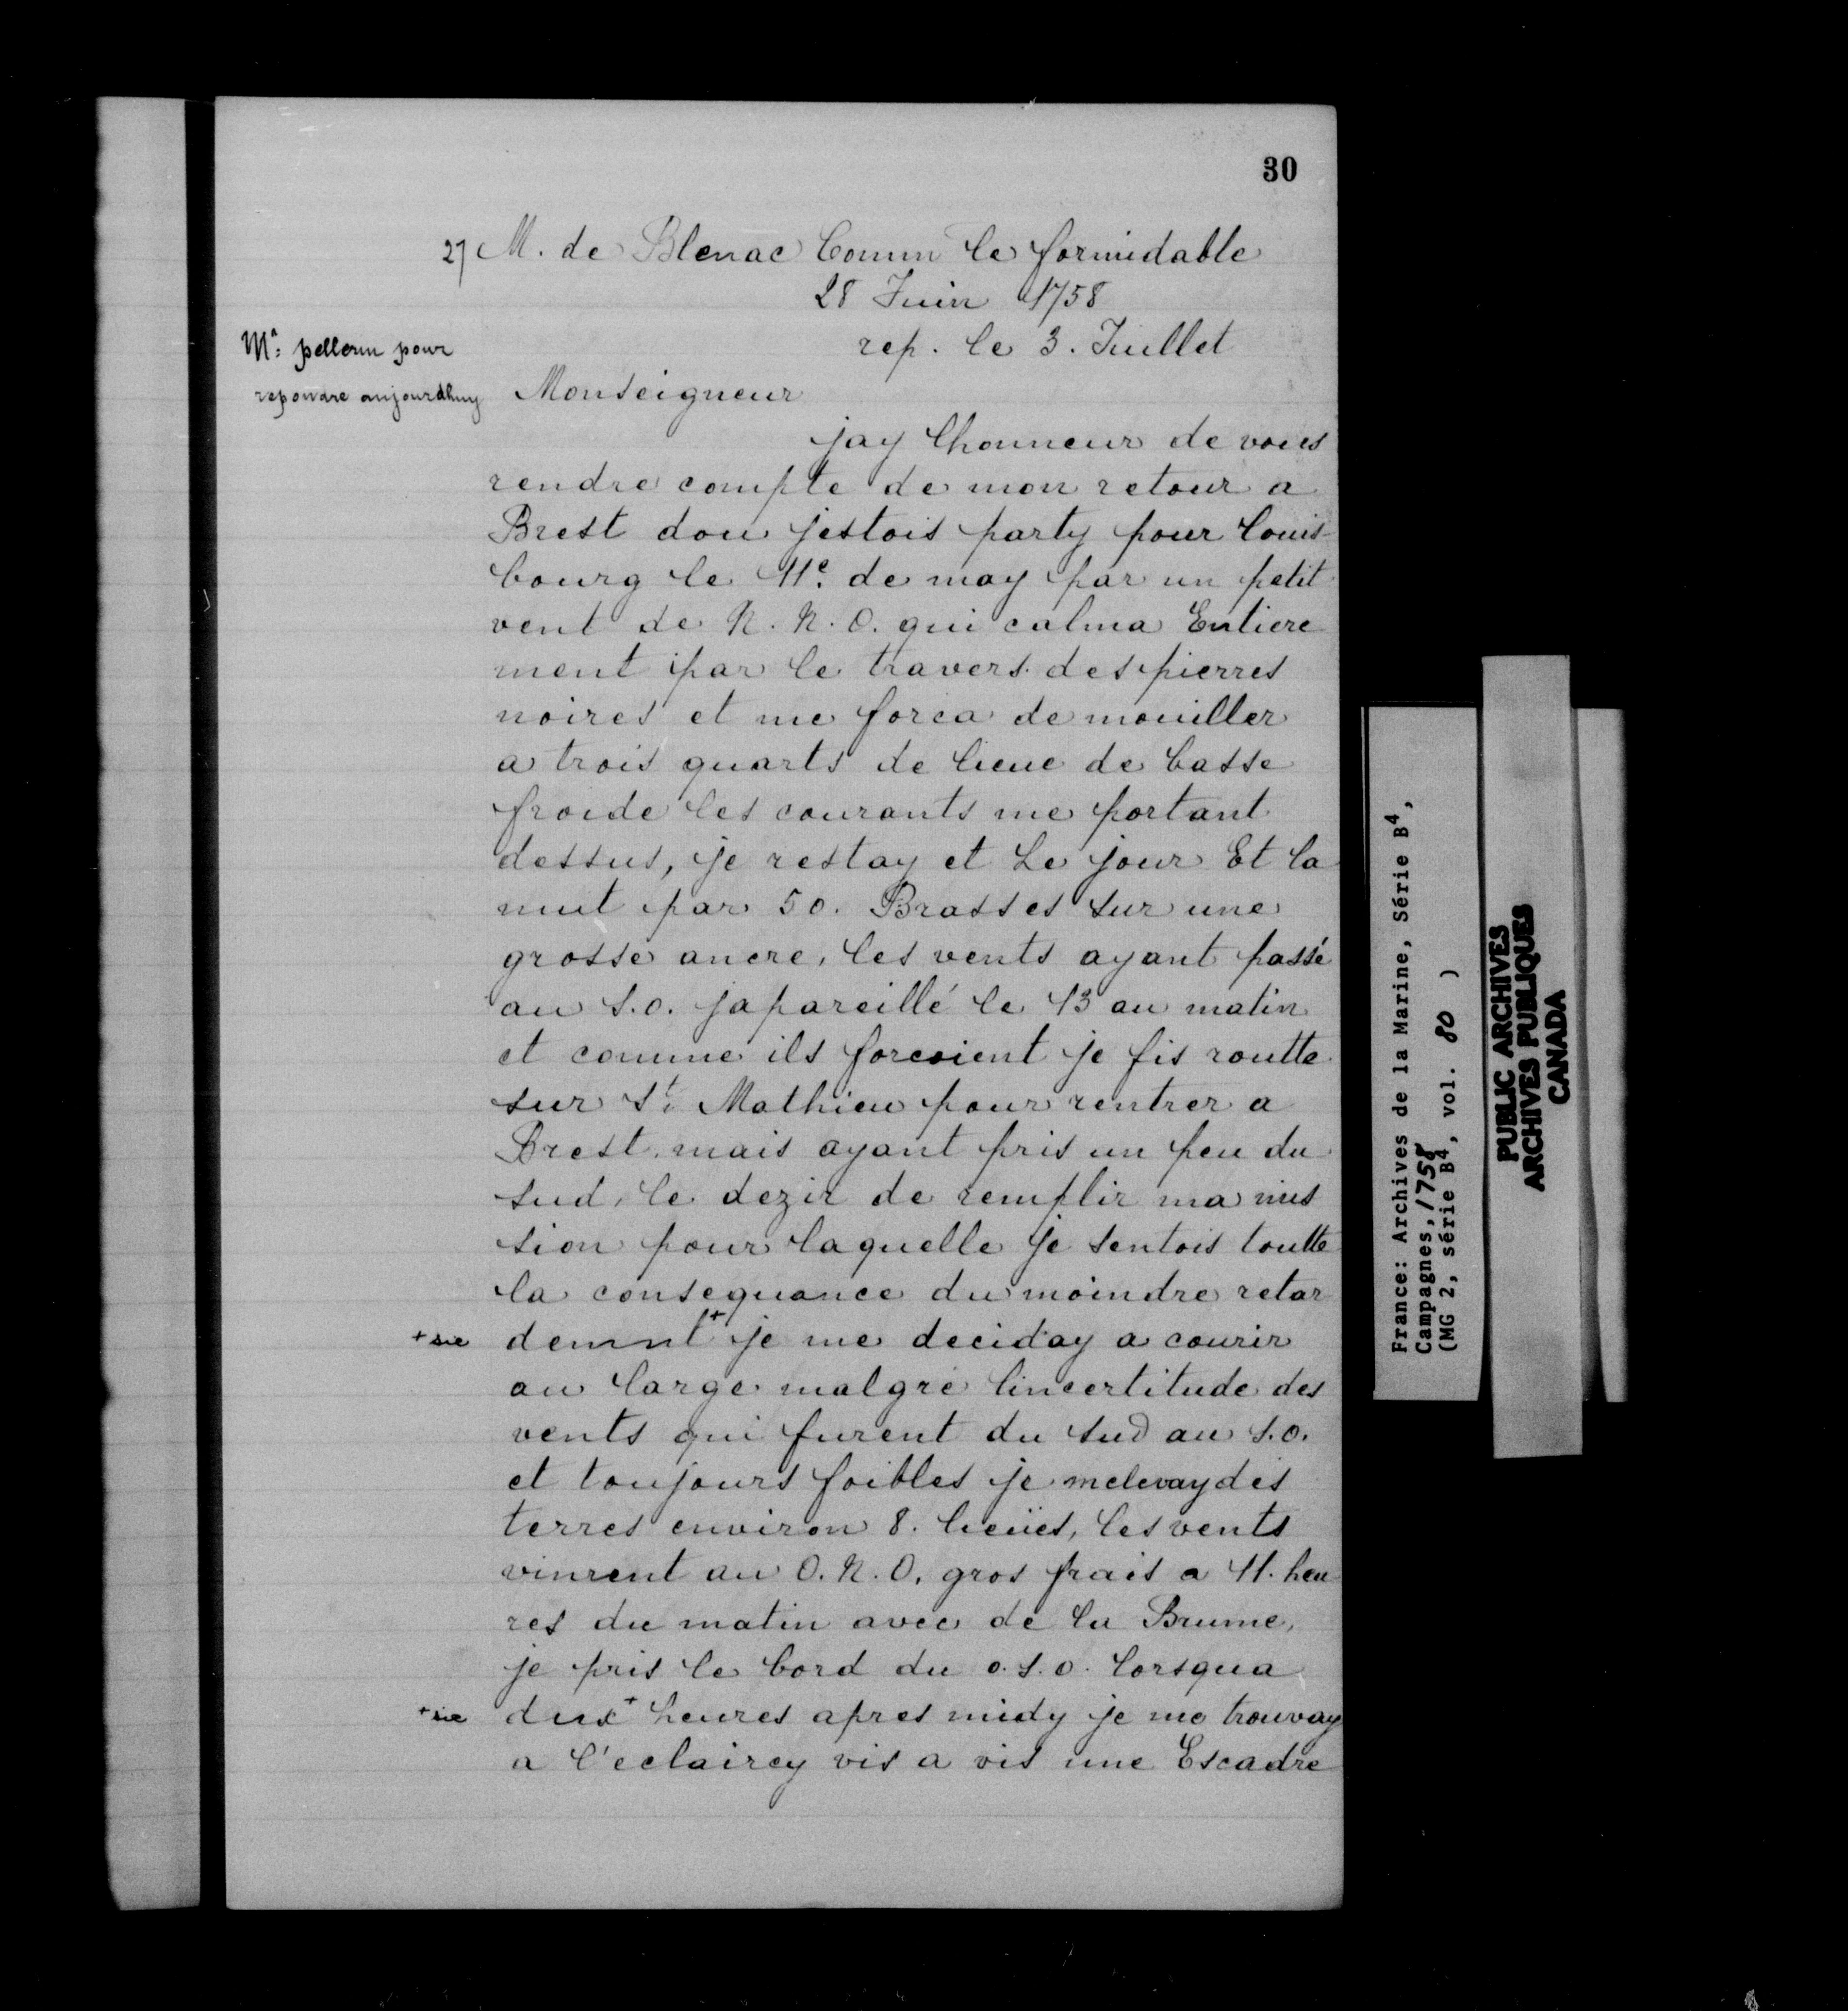 30
27 M. de Blenac Comm le formidable
28 Juin 1758
rep. le 3. Juillet
Mr: pellerin pour
repondre aujourdhuy
Monseigneur
jay lhonneur de vous
rendre compte de mon retour a
Brest dou jestois party pour Louis-
bourg le 11e. de may par un petit
vent de N. N. O. qui calma Entiere
ment par le travers des pierres
noires et me forca de mouiller
a trois quarts de lieue de basse
froide les courants me portant
dessus, je restay et Le jour Et la
nuit par 50. Brasses sur une
grosse ancre, les vents ayant passé
au S.O. japareillé le 13 au matin
et comme ils forcoient je fis routte
sur St. Mathieu pour rentrer a
Brest, mais ayant pris un peu du
sud, le dezir de remplir ma mis
sion pour laquelle je sentois toutte
la consequance du moindre retar
+ sic demnt+ je me deciday a courir
au large malgré lincertitude des
vents qui furent du sud au S.O.
et toujours foibles je melevay des
terres environ 8. lieües, les vents
vinrent au O. N. O. gros frais a 11. heu
res du matin avec de la Brume,
je pris le bord du o.s.o. lorsqua
+ sic dux+ heures apres midy je me trouvay
a l'eclaircy vis a vis une Escadre
France: Archives de la Marine, Série B4,
Campagnes, 1758
(MG 2, série B4, vol. 80 )
PUBLIC ARCHIVES
ARCHIVES PUBLIQUES
CANADA